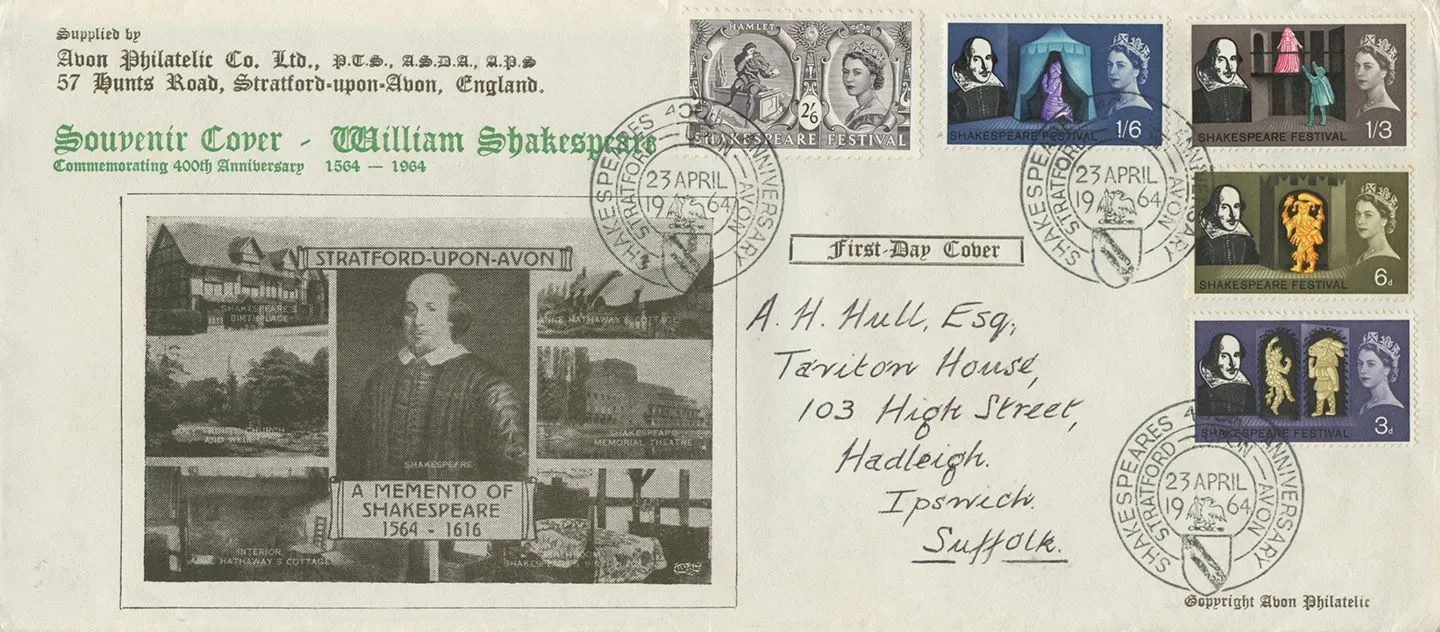 Supplied by
Avon Philatelic Co. Ltd., P.T.S., A.S.D.A., A.P.S
57 Hunts Road, Stratford-upon-Avon, England.
Souvenir Cover - William Shakespeare
Commemorating 400th Anniversary 1564 — 1964
HAMLET
2/6
SHAKESPEARE FESTIVAL
1/6
SHAKESPEARE FESTIVAL
1/3
SHAKESPEARE FESTIVAL
6d
SHAKESPEARE FESTIVAL
3d
SHAKESPEARE FESTIVAL
SHAKESPEARES 400th ANNIVERSARY
STRATFORD UPON AVON
23 APRIL
19 64
SHAKESPEARES 400th ANNIVERSARY
STRATFORD UPON AVON
23 APRIL
19 64
SHAKESPEARES 400th ANNIVERSARY
STRATFORD UPON AVON
23 APRIL
19 64
First-Day Cover
A. H. Hull, Esq,
Taviton House,
103 High Street,
Hadleigh.
Ipswich.
Suffolk.
STRATFORD-UPON-AVON
SHAKESPEARE'S
BIRTHPLACE
ANNE HATHAWAY'S COTTAGE
CHURCH
AND WEIR
SHAKESPEARE
MEMORIAL THEATRE
SHAKESPEARE
A MEMENTO OF
SHAKESPEARE
1564 - 1616
INTERIOR,
ANNE HATHAWAY'S COTTAGE
SHAKESPEARE'S
Copyright Avon Philatelic